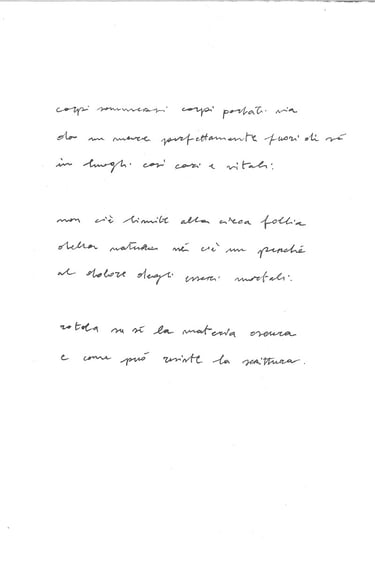 corpi sommersi corpi portati via
da un mare perfettamente fuori di sé
in luoghi così cari e vitali.
non c'è limite alla cieca follia
della natura né c'è un perché
al dolore degli esseri mortali.
rotola su sé la materia oscura
e come può resiste la scrittura.